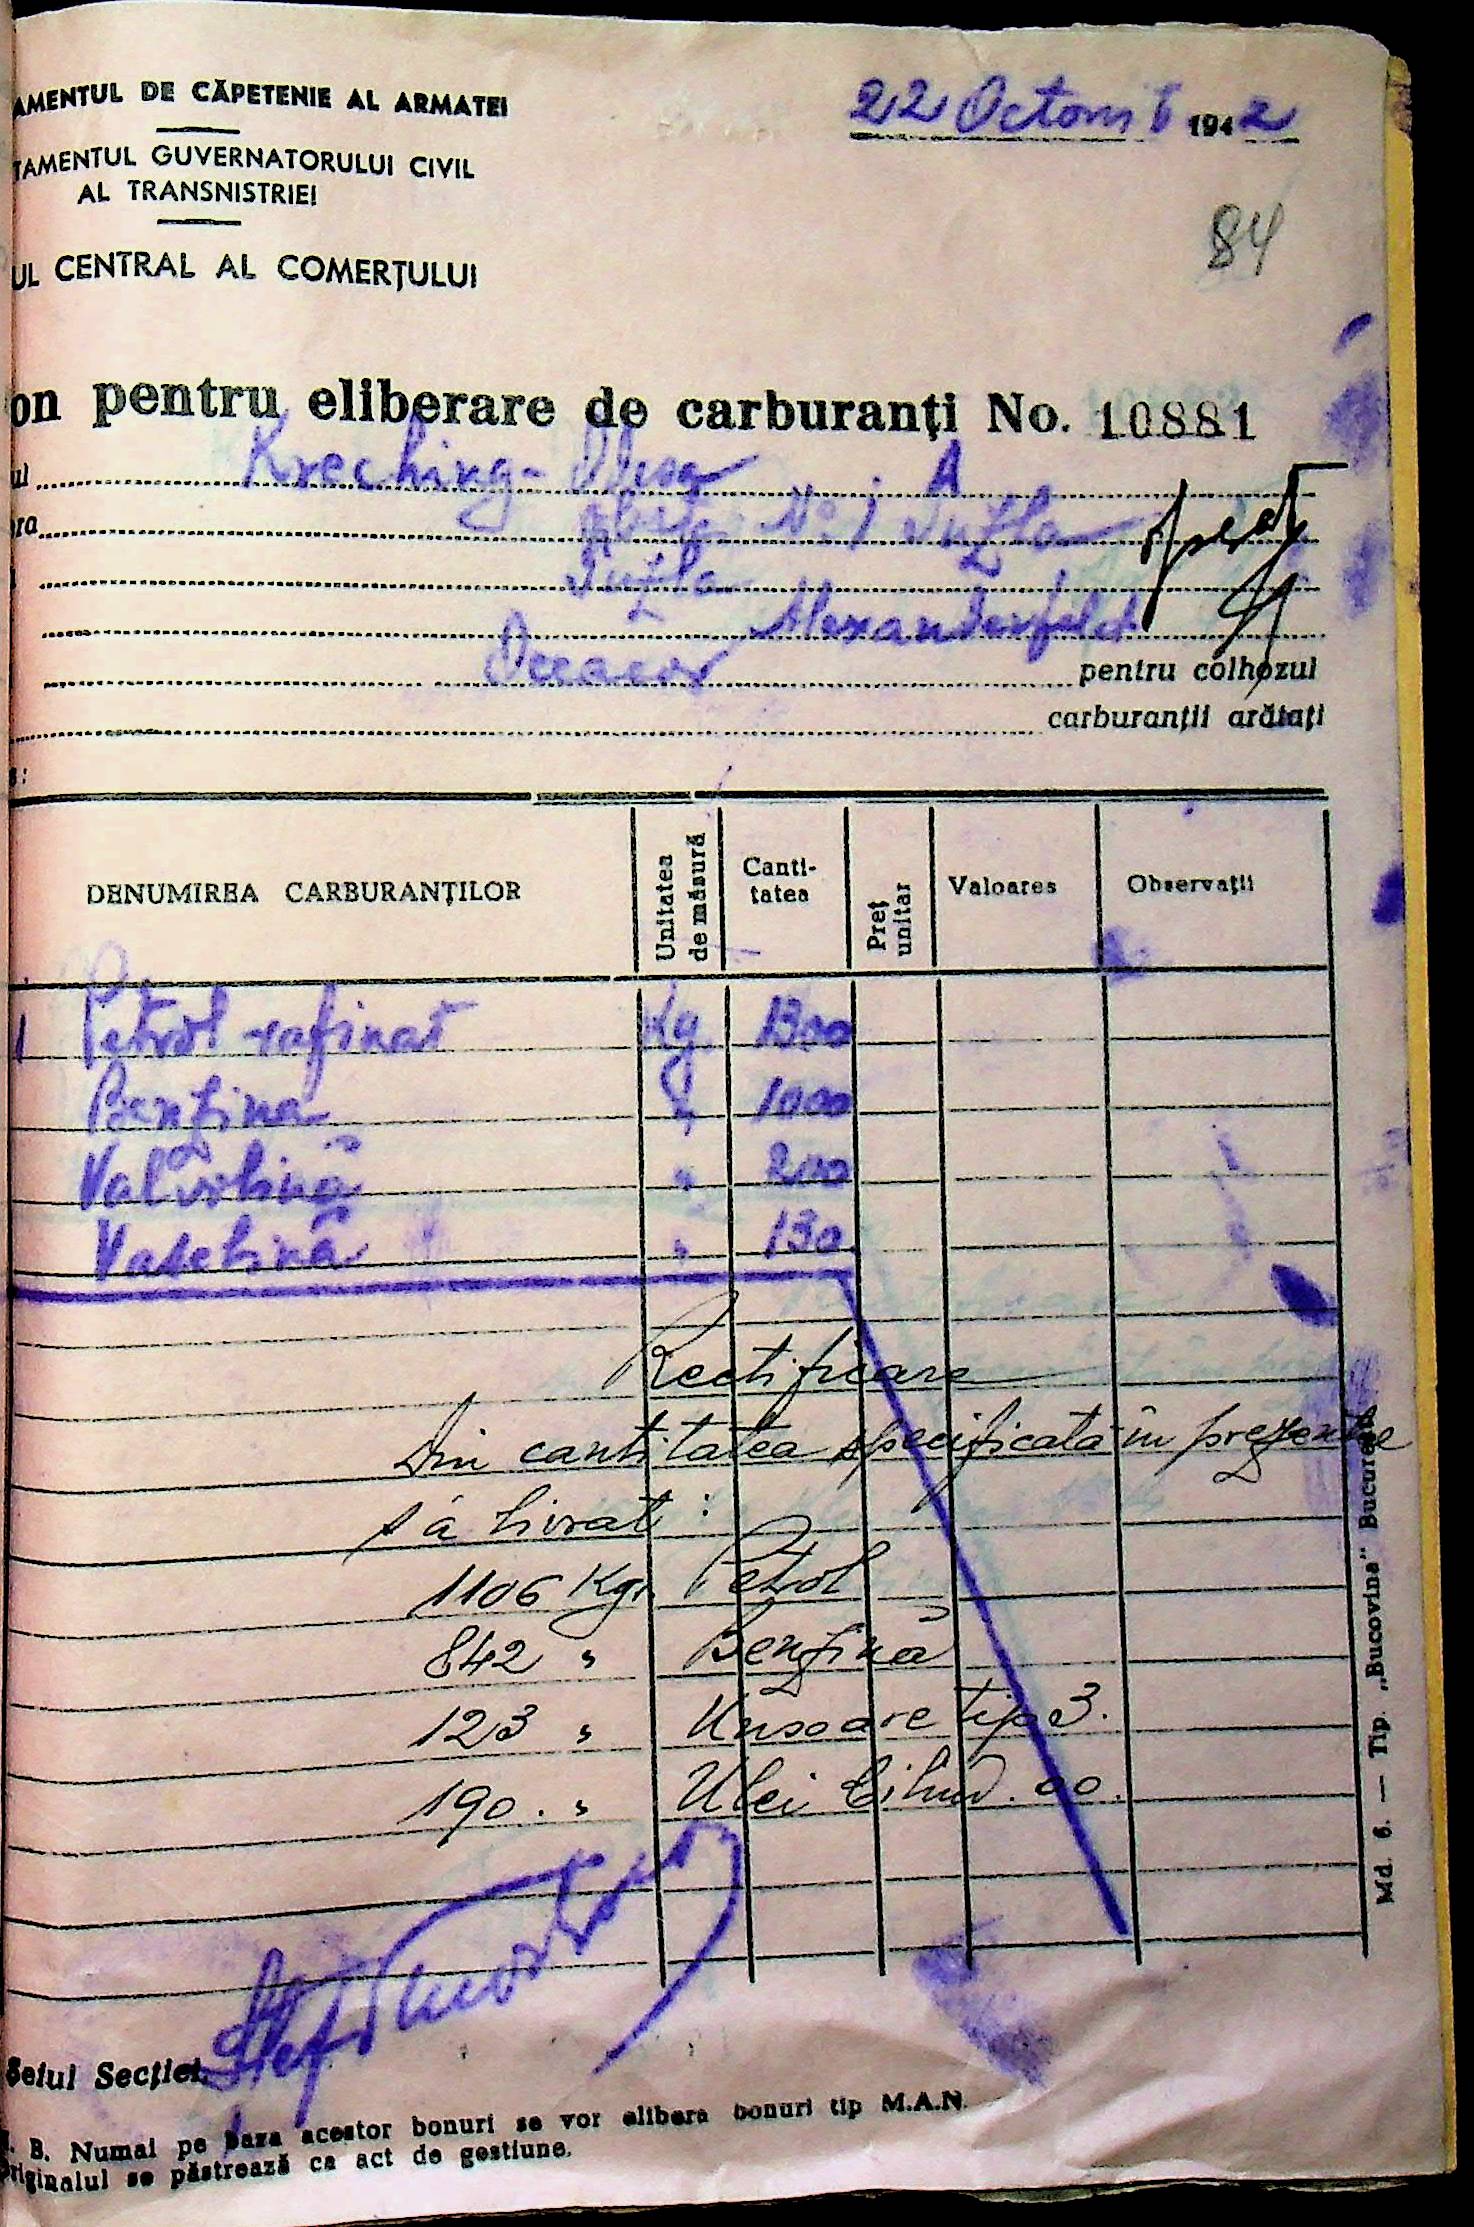 AMENTUL DE CĂPETENIE AL ARMATEI
22 Octomb 1942
TAMENTUL GUVERNATORULUI CIVIL
AL TRANSNISTRIEI
84
UL CENTRAL AL COMERȚULUI
on pentru eliberare de carburanți No. 10881
ul Kreching-
ra No 1 Suzla
Suzla
Alexanderfeld
Oceacov pentru colhozul
carburanții arătați
s:
DENUMIREA CARBURANȚILOR
Unitatea de măsură
Canti-tatea
Preț unitar
Valoarea
Observații
1 Petrol rafinat Kg 1300
Benzina " 1000
Valvolină " 200
Vaselină " 130
Rectificare
Din cantitatea specificată în prezentul
s'a livrat :
1106 Kgr. Petrol
842 " Benzină
123 " Unsoare tip 3.
190. " Ulei 00.
Șeful Secției,
. B. Numai pe baza acestor bonuri se vor elibera bonuri tip M.A.N.
Originalul se păstrează ca act de gestiune.
Md. 6. — Tip. „Bucovina" București